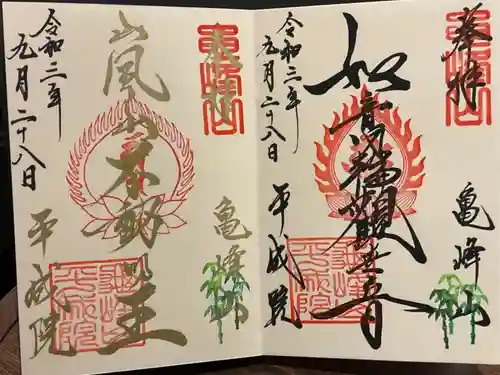 奉拝
亀峰山
如意輪觀世音
令和三年
九月二十八日
平成院
奉拝
亀峰山
令和三年
九月二十八日
平成院